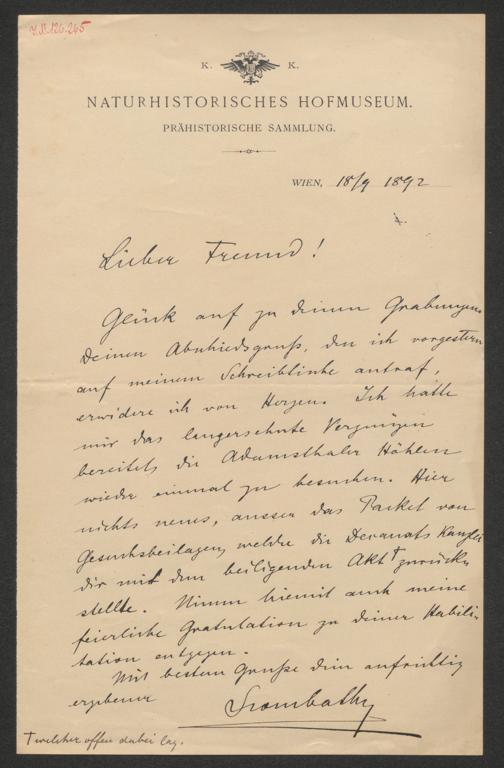 J.N. 126.265
K. K.
NATURHISTORISCHES HOFMUSEUM.
PRÄHISTORISCHE SAMMLUNG.
WIEN, 18/9 1892
Lieber Freund!
Glück auf zu deinen Grabungen.
Deinen Abschiedsgruß, den ich vorgestern
auf meinem Schreibtische antraf,
erwidere ich von Herzen. Ich hatte
mir das langersehnte Vergnügen
bereitet, die Adamsthaler Höhlen
wieder einmal zu besuchen. Hier
nichts neues, ausser das Packet von
Gesuchsbeilagen, welche die Decanats Kanzlei
dir mit dem beiligenden Akt † zurück
stellte. Nimm hiemit auch meine
feierliche Gratulation zu deiner Habili-
tation entgegen.
Mit bestem Gruße dein aufrichtig
ergebener
Szombathy
† welcher offen dabei lag.